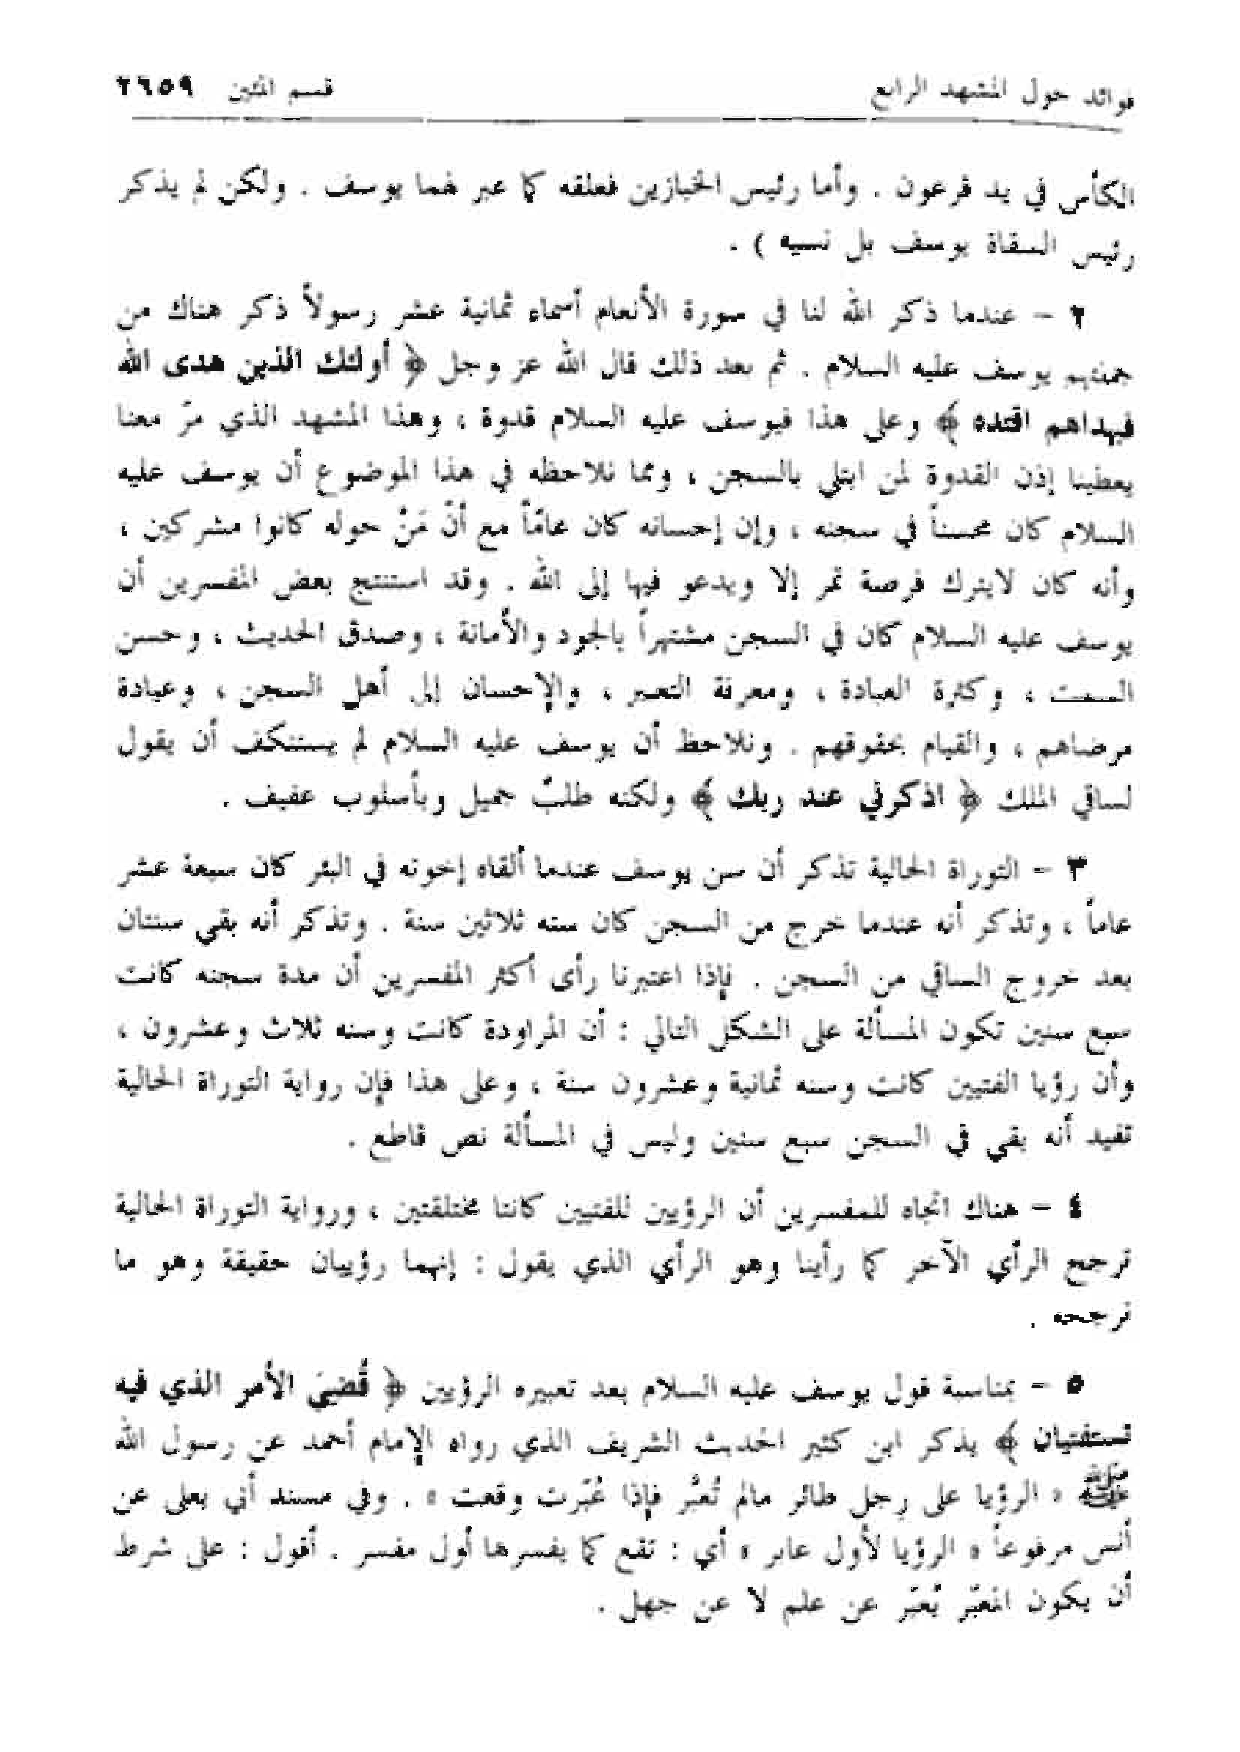 فوائد حول المشهد الرابع قسم المئين ٢٦٥٩
الكأس في يد فرعون . وأما رئيس الخبازين فعلقه كما عبر لهما يوسف . ولكن لم يذكر
رئيس السقاة يوسف بل نسيه ) .
٢ – عندما ذكر الله لنا في سورة الأنعام أسماء ثمانية عشر رسولاً ذكر هناك من
جملتهم يوسف عليه السلام . ثم بعد ذلك قال الله عز وجل ﴿ أولئك الذين هدى الله
فبهداهم اقتده ﴾ وعلى هذا فيوسف عليه السلام قدوة ؛ وهذا المشهد الذي مرّ معنا
يعطينا إذن القدوة لمن ابتلي بالسجن ، ومما نلاحظه في هذا الموضوع أن يوسف عليه
السلام كان محسناً في سجنه ، وإن إحسانه كان عامّاً مع أنّ مَنْ حوله كانوا مشركين ،
وأنه كان لايترك فرصة تمر إلا ويدعو فيها إلى الله . وقد استنتج بعض المفسرين أن
يوسف عليه السلام كان في السجن مشتهراً بالجود والأمانة ، وصدق الحديث ، وحسن
السمت ، وكثرة العبادة ، ومعرفة التعبير ، والإحسان إلى أهل السجن ، وعيادة
مرضاهم ، والقيام بحقوقهم . ونلاحظ أن يوسف عليه السلام لم يستنكف أن يقول
لساقي الملك ﴿ اذكرني عند ربك ﴾ ولكنه طلبٌ جميل وبأسلوب عفيف .
٣ – التوراة الحالية تذكر أن سن يوسف عندما ألقاه إخوته في البئر كان سبعة عشر
عاماً ، وتذكر أنه عندما خرج من السجن كان سنه ثلاثين سنة . وتذكر أنه بقي سنتان
بعد خروج الساقي من السجن . فإذا اعتبرنا رأى أكثر المفسرين أن مدة سجنه كانت
سبع سنين تكون المسألة على الشكل التالي : أن المراودة كانت وسنه ثلاث وعشرون ،
وأن رؤيا الفتيين كانت وسنه ثمانية وعشرون سنة ، وعلى هذا فإن رواية التوراة الحالية
تفيد أنه بقي في السجن سبع سنين وليس في المسألة نص قاطع .
٤ – هناك اتجاه للمفسرين أن الرؤيين للفتيين كانتا مختلقتين ، ورواية التوراة الحالية
ترجح الرأي الآخر كما رأينا وهو الرأي الذي يقول : إنهما رؤييان حقيقة وهو ما
نرجحه .
٥ – بمناسبة قول يوسف عليه السلام بعد تعبيره الرؤيين ﴿ قُضيَ الأمر الذي فيه
تستفتيان ﴾ يذكر ابن كثير الحديث الشريف الذي رواه الإمام أحمد عن رسول الله
ﷺ « الرؤيا على رجل طائر مالم تُعبَّر فإذا عُبّرت وقعت » . وفي مسند أبي يعلى عن
أنس مرفوعاً « الرؤيا لأول عابر » أي : تقع كما يفسرها أول مفسر . أقول : على شرط
أن يكون المعبّر يُعبّر عن علم لا عن جهل .